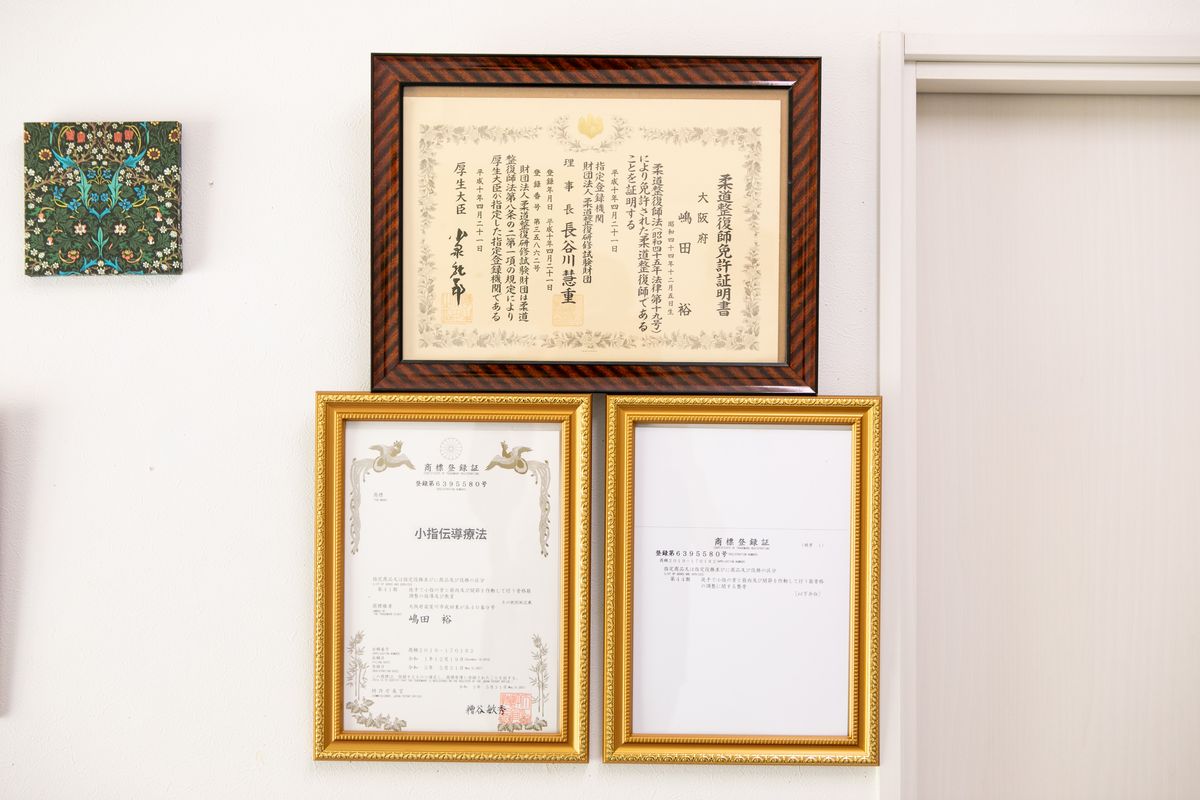 柔道整復師免許証明書
大阪府
嶋田 裕
昭和四十四年十二月五日生
柔道整復師法(昭和四十五年法律第十九号)
により免許された柔道整復師である
ことを証明する
平成十年四月二十一日
指定登録機関
財団法人柔道整復研修試験財団
理事長 長谷川慧重
登録年月日 平成十年四月二十一日
登録番号 第三五八六二号
財団法人柔道整復研修試験財団は柔道
整復師法第八条の二第一項の規定により
厚生大臣が指定した指定登録機関である
平成十年四月二十一日
厚生大臣 小泉純一郎
商標登録証
登録第6395580号
商標
小指伝導療法
指定商品又は指定役務並びに商品及び役務の区分
第41類
商標権者
嶋田 裕
特許庁長官
糟谷敏秀
商標登録証
登録第6395580号
指定商品又は指定役務並びに商品及び役務の区分
第44類
(以下余白)